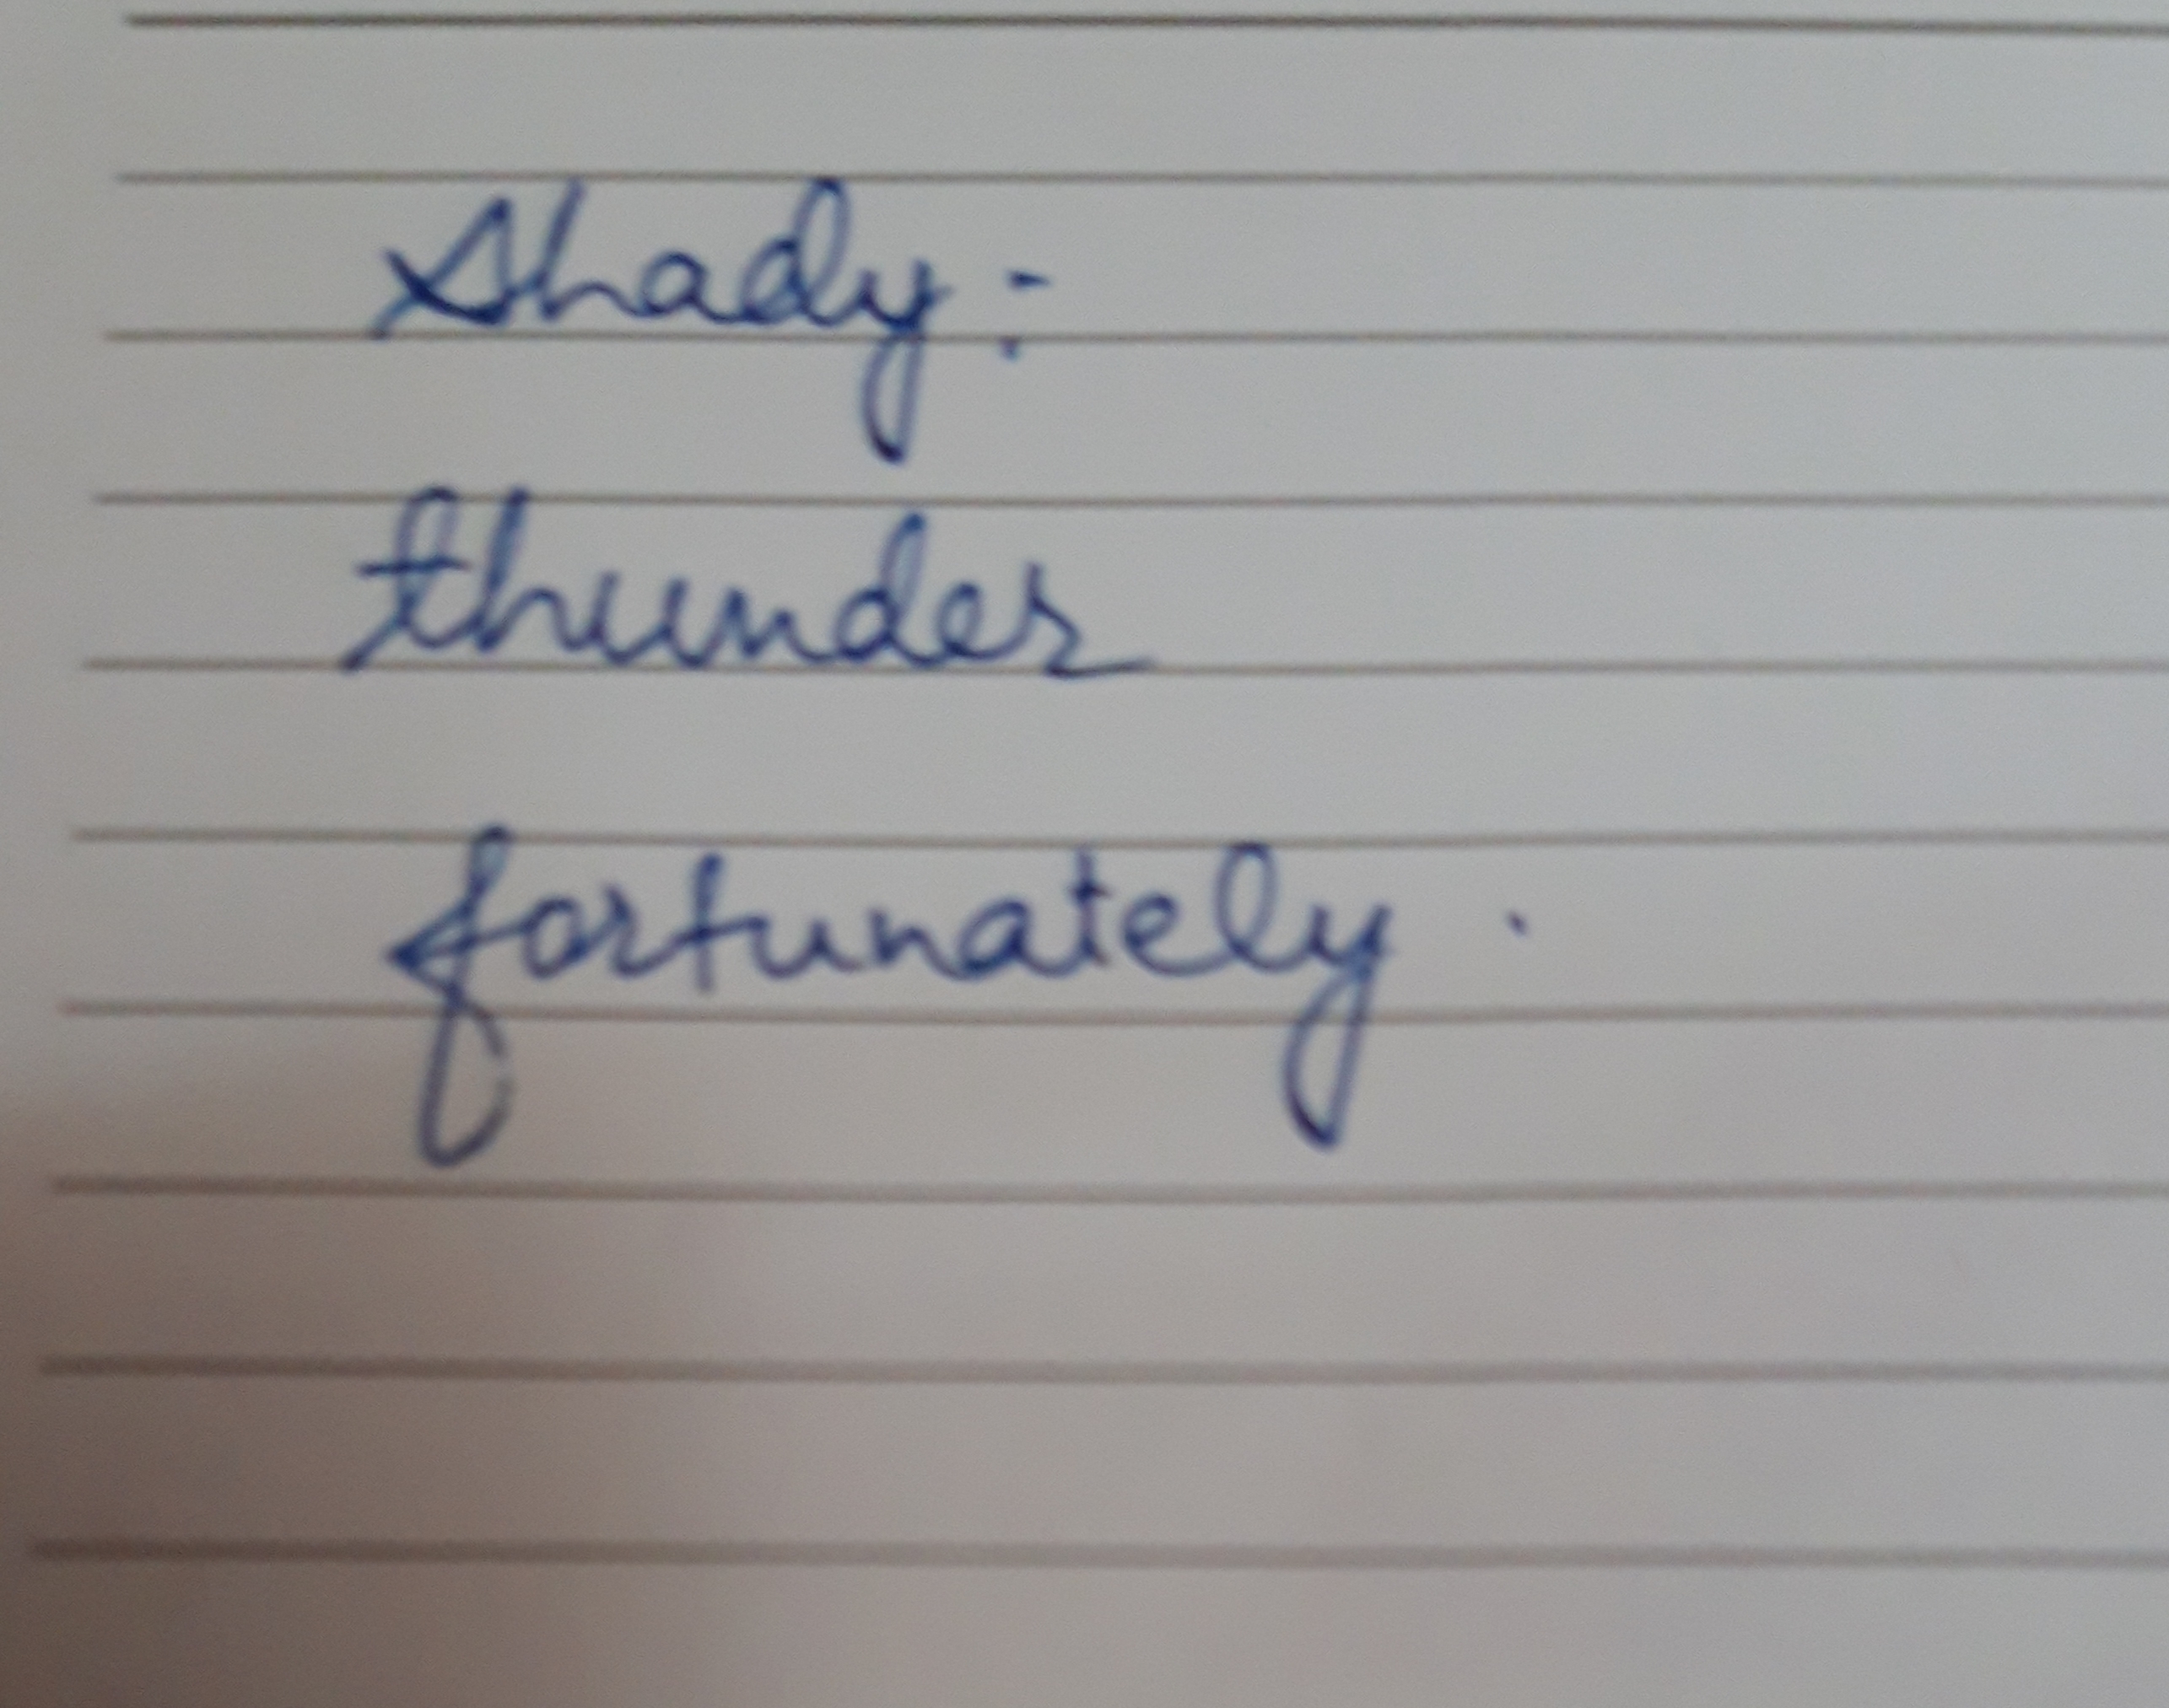 shady:
thunder
fortunately.